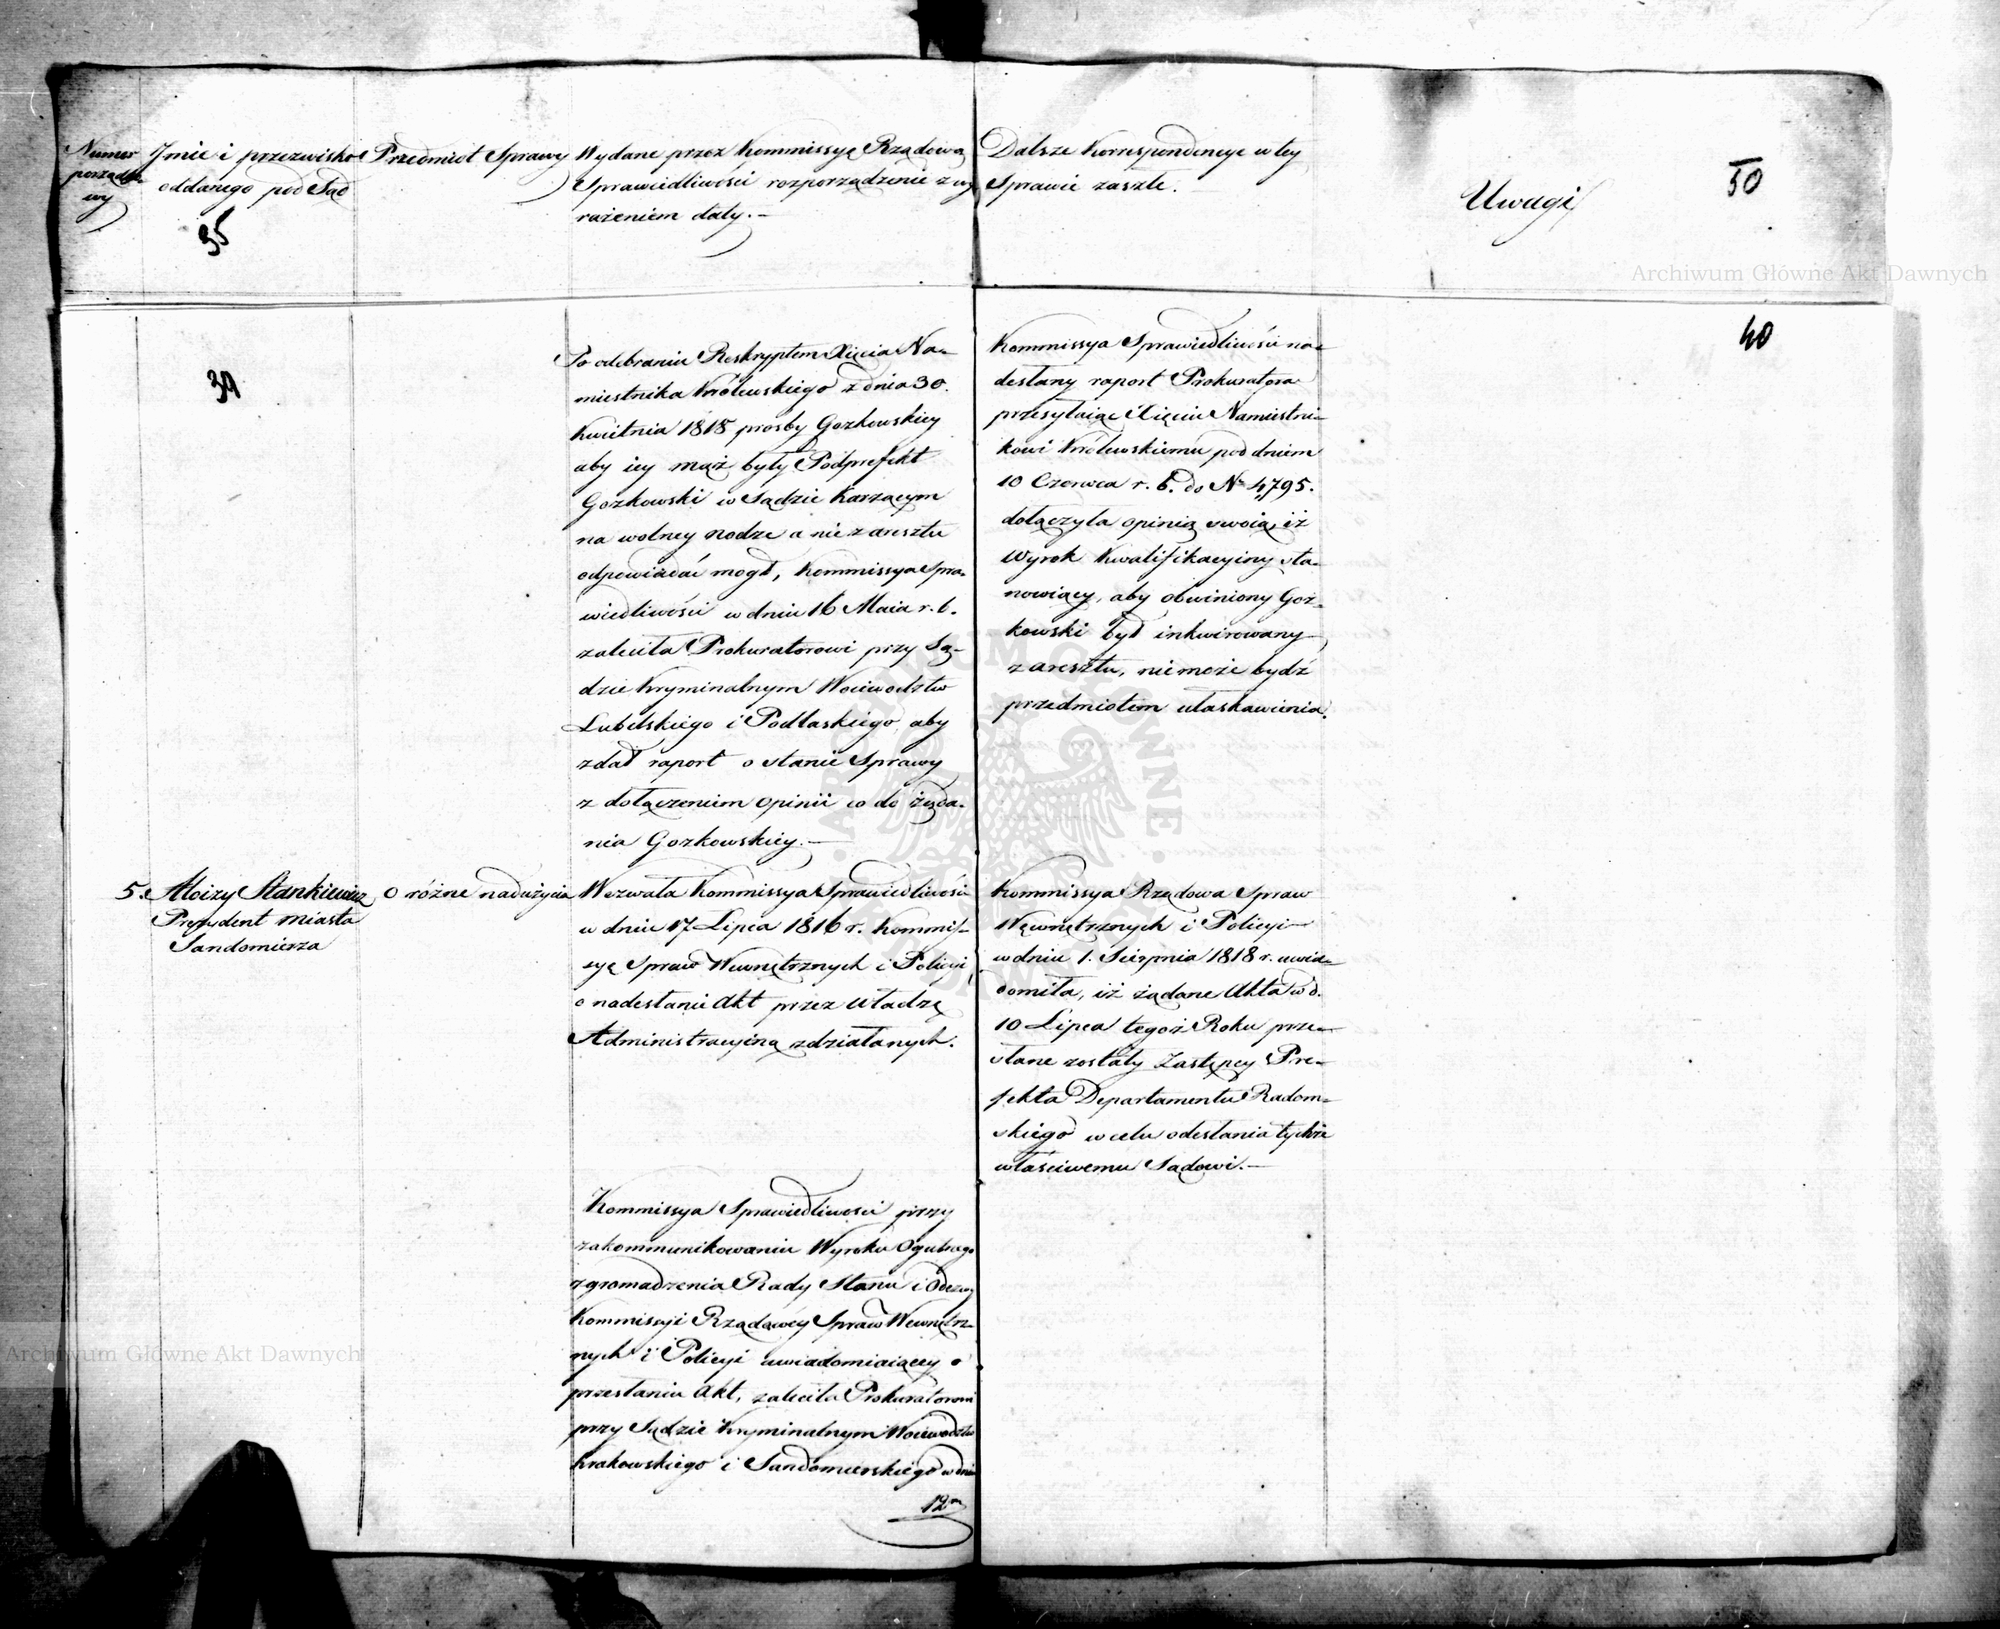 Numer
porządko
wy
Jmie i przezwisko
oddanego pod Sąd
Przedmiot Sprawy
Wydane przez Kommissyę Rządową
Sprawiedliwości rozporządzenie z wy
rażeniem daty.—
Dalsze Korrespondencye w tey
Sprawie zaszłe.
Uwagi
50
35
34
40
Po odebraniu Reskryptem Xięcia Na=
miestnika Królewskiego z dnia 30.
Kwietnia 1818 prosby Gozkowskiey
aby iey mąż były Podprefekt
Gozkowski w Sądzie Karzącym
na wolney nodze a nie z aresztu
odpowiadać mogł, Kommissya Spra=
wiedliwości w dniu 16 Maia r. b.
zaleciła Prokuratorowi przy Są=
dzie Kryminalnym Woiewodztw
Lubelskiego i Podlaskiego, aby
zdał raport o stanie Sprawy
z dołączeniem Opinii co do żąda=
nia Gozkowskiey.—
Kommissya Sprawiedliwości na=
desłany raport Prokuratora
przesyłaiąc Xięciu Namiestni=
kowi Królewskiemu pod dniem
10 Czerwca r. b. do No 4,795.
dołączyła opinią swoią, iż
Wyrok Kwalifikacyiny sta=
nowiący, aby obwiniony Goz=
kowski był inkwirowany
z aresztu, niemoże bydź
przedmiotem ułaskawienia.
5. Aloizy Stankiewicz
Prezydent miasta
Sandomierza
O różne nadużycia
Wezwała Kommissya Sprawiedliwości
w dniu 17 Lipca 1816 r. Kommis=
syę Spraw Wewnętrznych i Policyi
o nadesłanie Akt przez Władzę
Administracyiną zdziałanych.
Kommissya Rządowa Spraw
Wewnętrznych i Policyi
w dniu 1. Sierpnia 1818 r. uwia=
domiła, iż żądane Akta w d.
10 Lipca tegoż Roku prze=
słane zostały Zastępcy Pre=
fekta Departamentu Radom=
skiego w celu odesłania tychże
właściwemu Sądowi.—
Kommissya Sprawiedliwości przy
zakommunikowaniu Wyroku Ogulnego
zgromadzenia Rady Stanu i Odezwy
Kommissyi Rządowéy Spraw Wewnętrz=
nych i Policyi uwiadomiaiącey o
przesłaniu Akt, zaleciła Prokuratorowi
przy Sądzie Kryminalnym Woiewodztw
Krakowskiego i Sandomierskiego w dniu
12m
Archiwum Główne Akt Dawnych
Archiwum Główne Akt Dawnych
ARCHIWUM GŁÓWNE AKT DAWNYCH